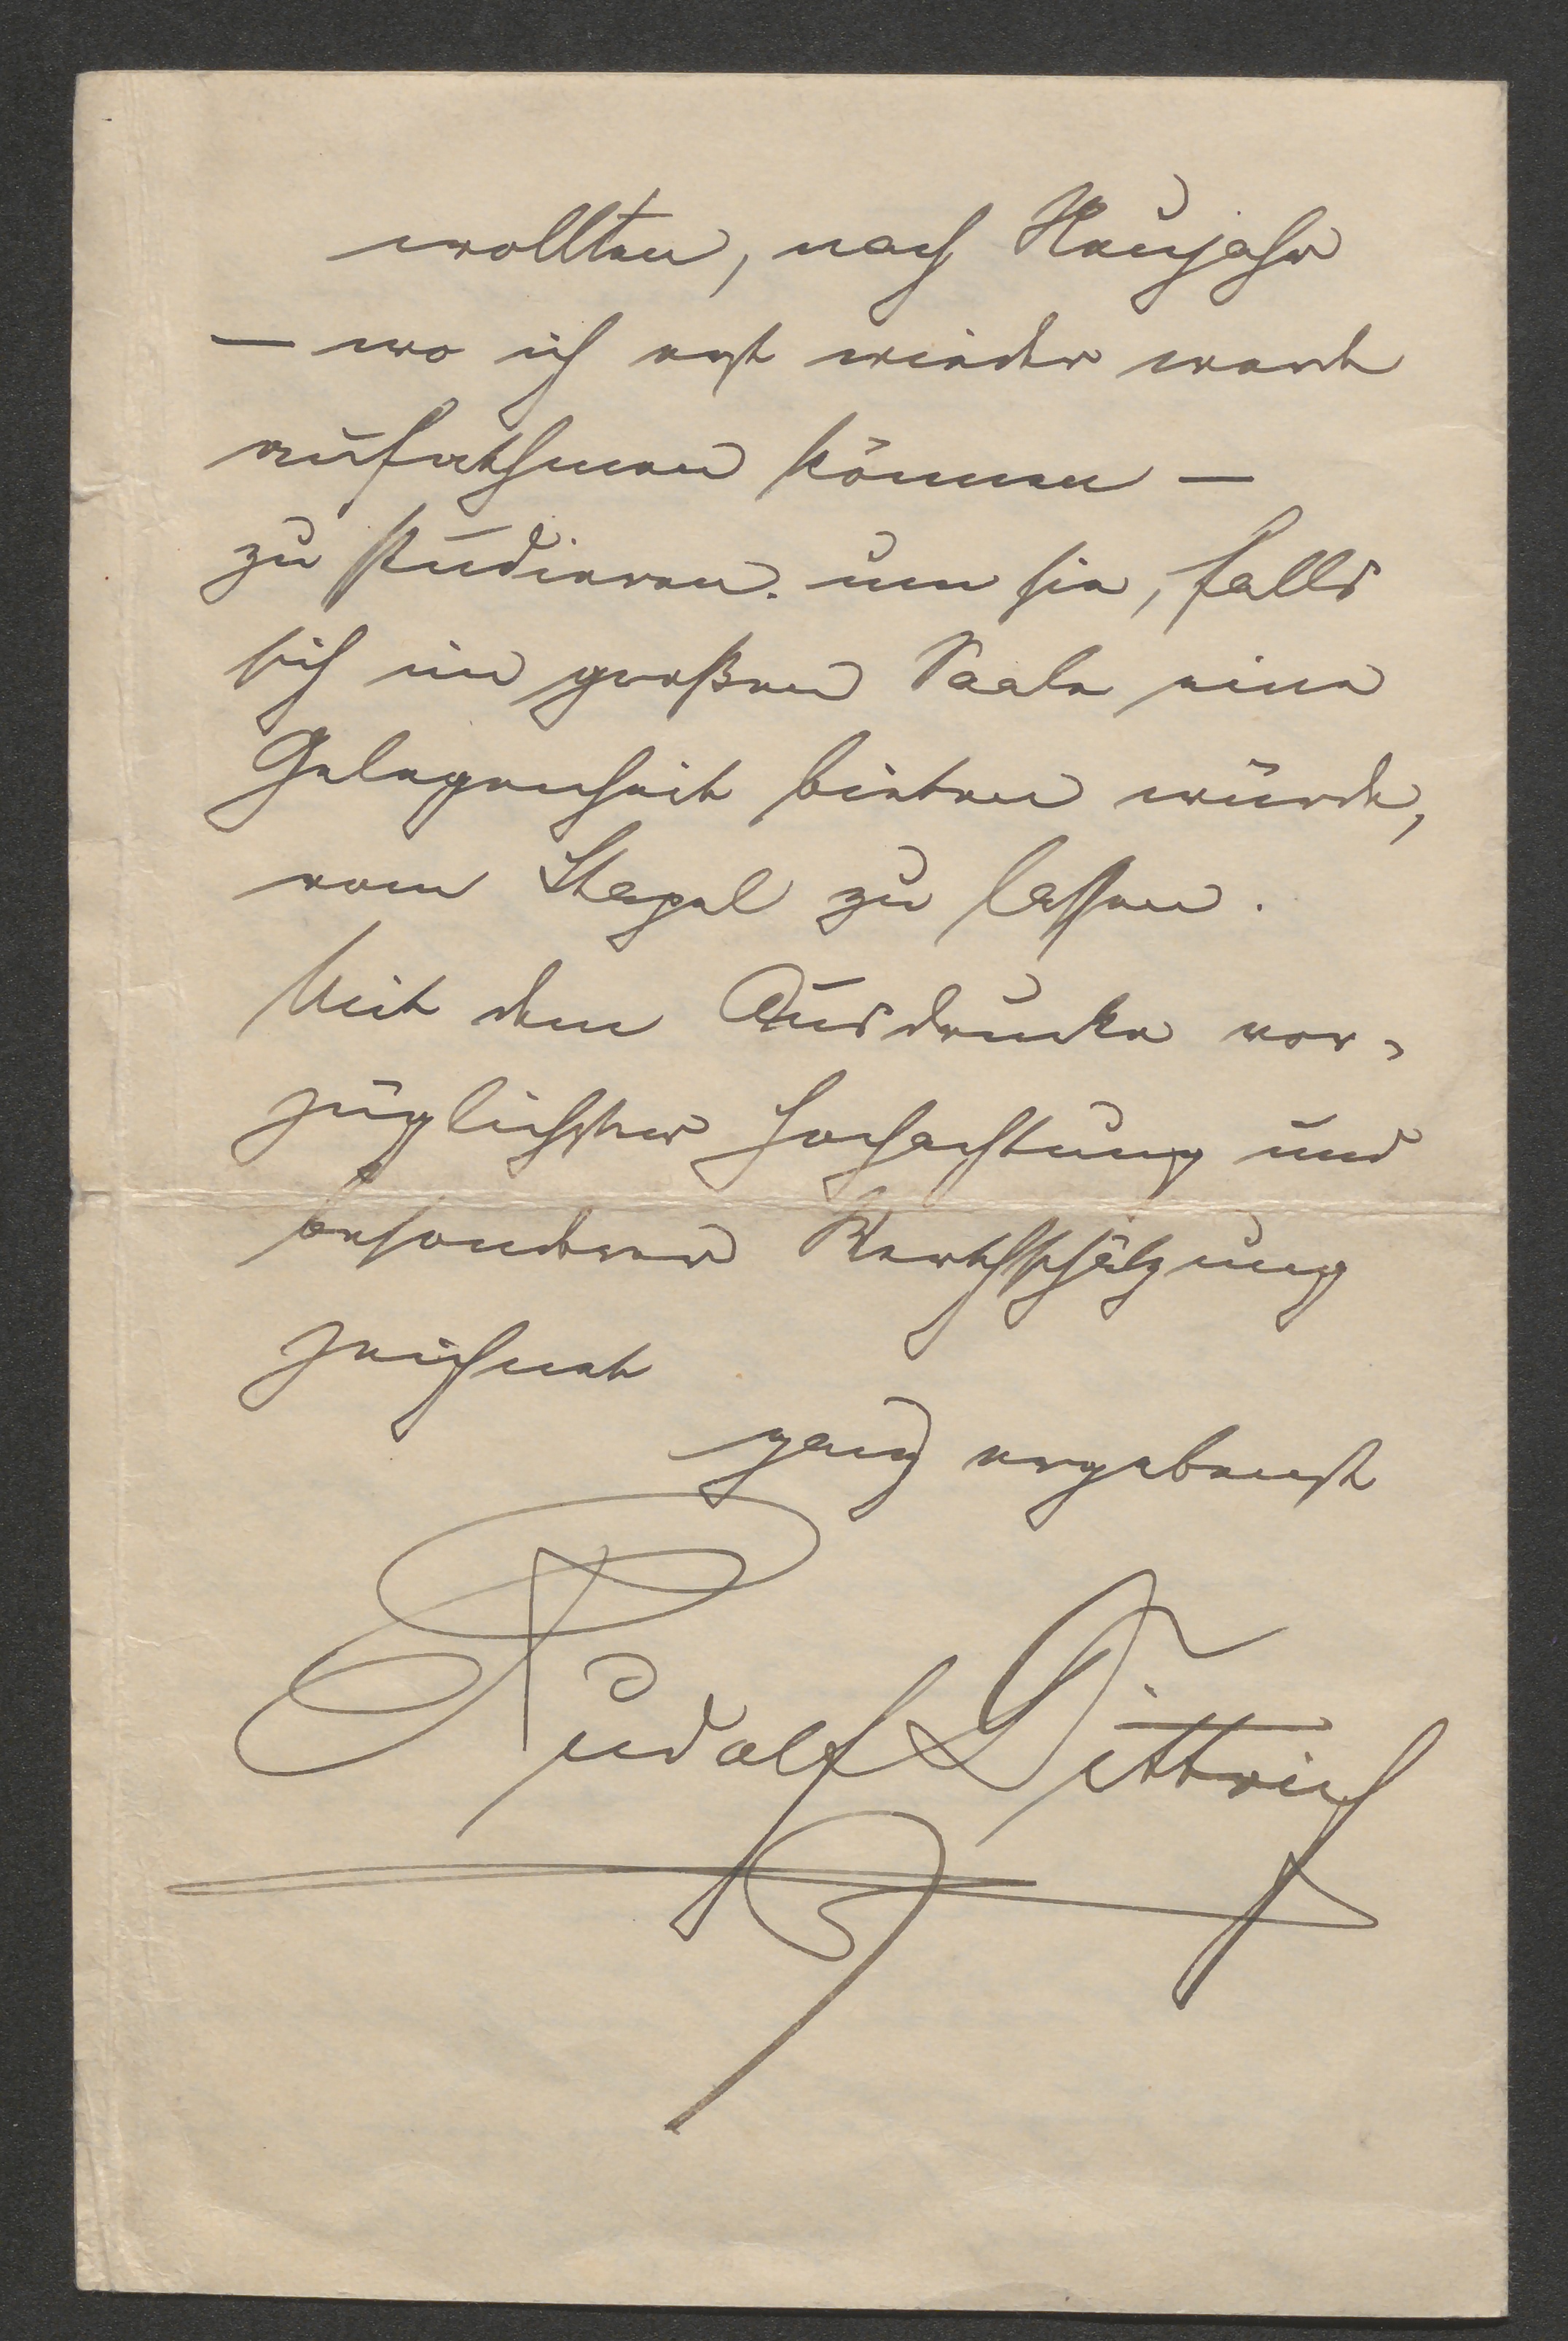 wollten, nach Neujahr
— wo ich erst wieder werde
aufathmen können —
zu studieren. um sie, falls
sich im großen Saale eine
Gelegenheit bieten würde,
vom Stapel zu lassen.
Mit dem Ausdrucke vor-
züglichster Hochachtung und
besonderer Werthschätzung
zeichnet
ganz ergebenst
Rudolf Dittrich